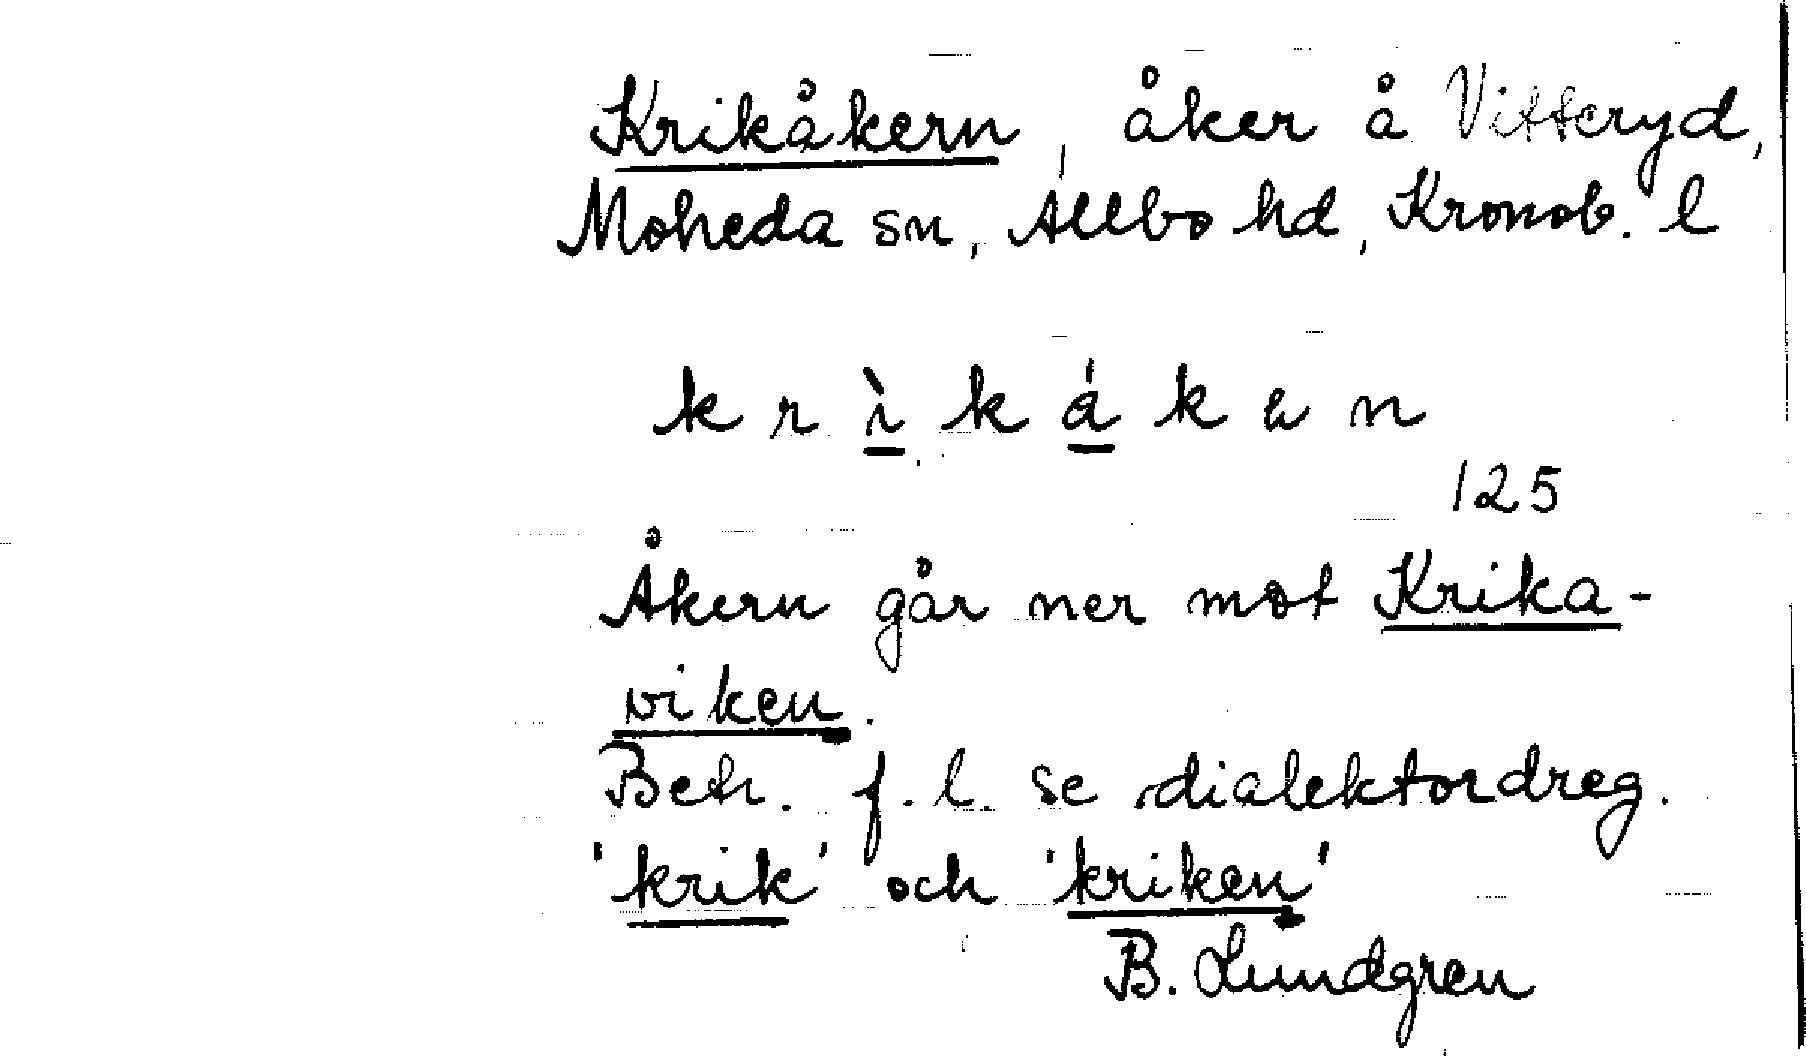 Krikåkern, åker å Vitteryd,
Moheda sn, Allbo hd, Kronob. l
k r ì k á k e n
125
Åkern går ner mot Krika-
viken.
Betr. f. l. se dialektordreg.
'krik' och 'kriken'
B. Lundgren